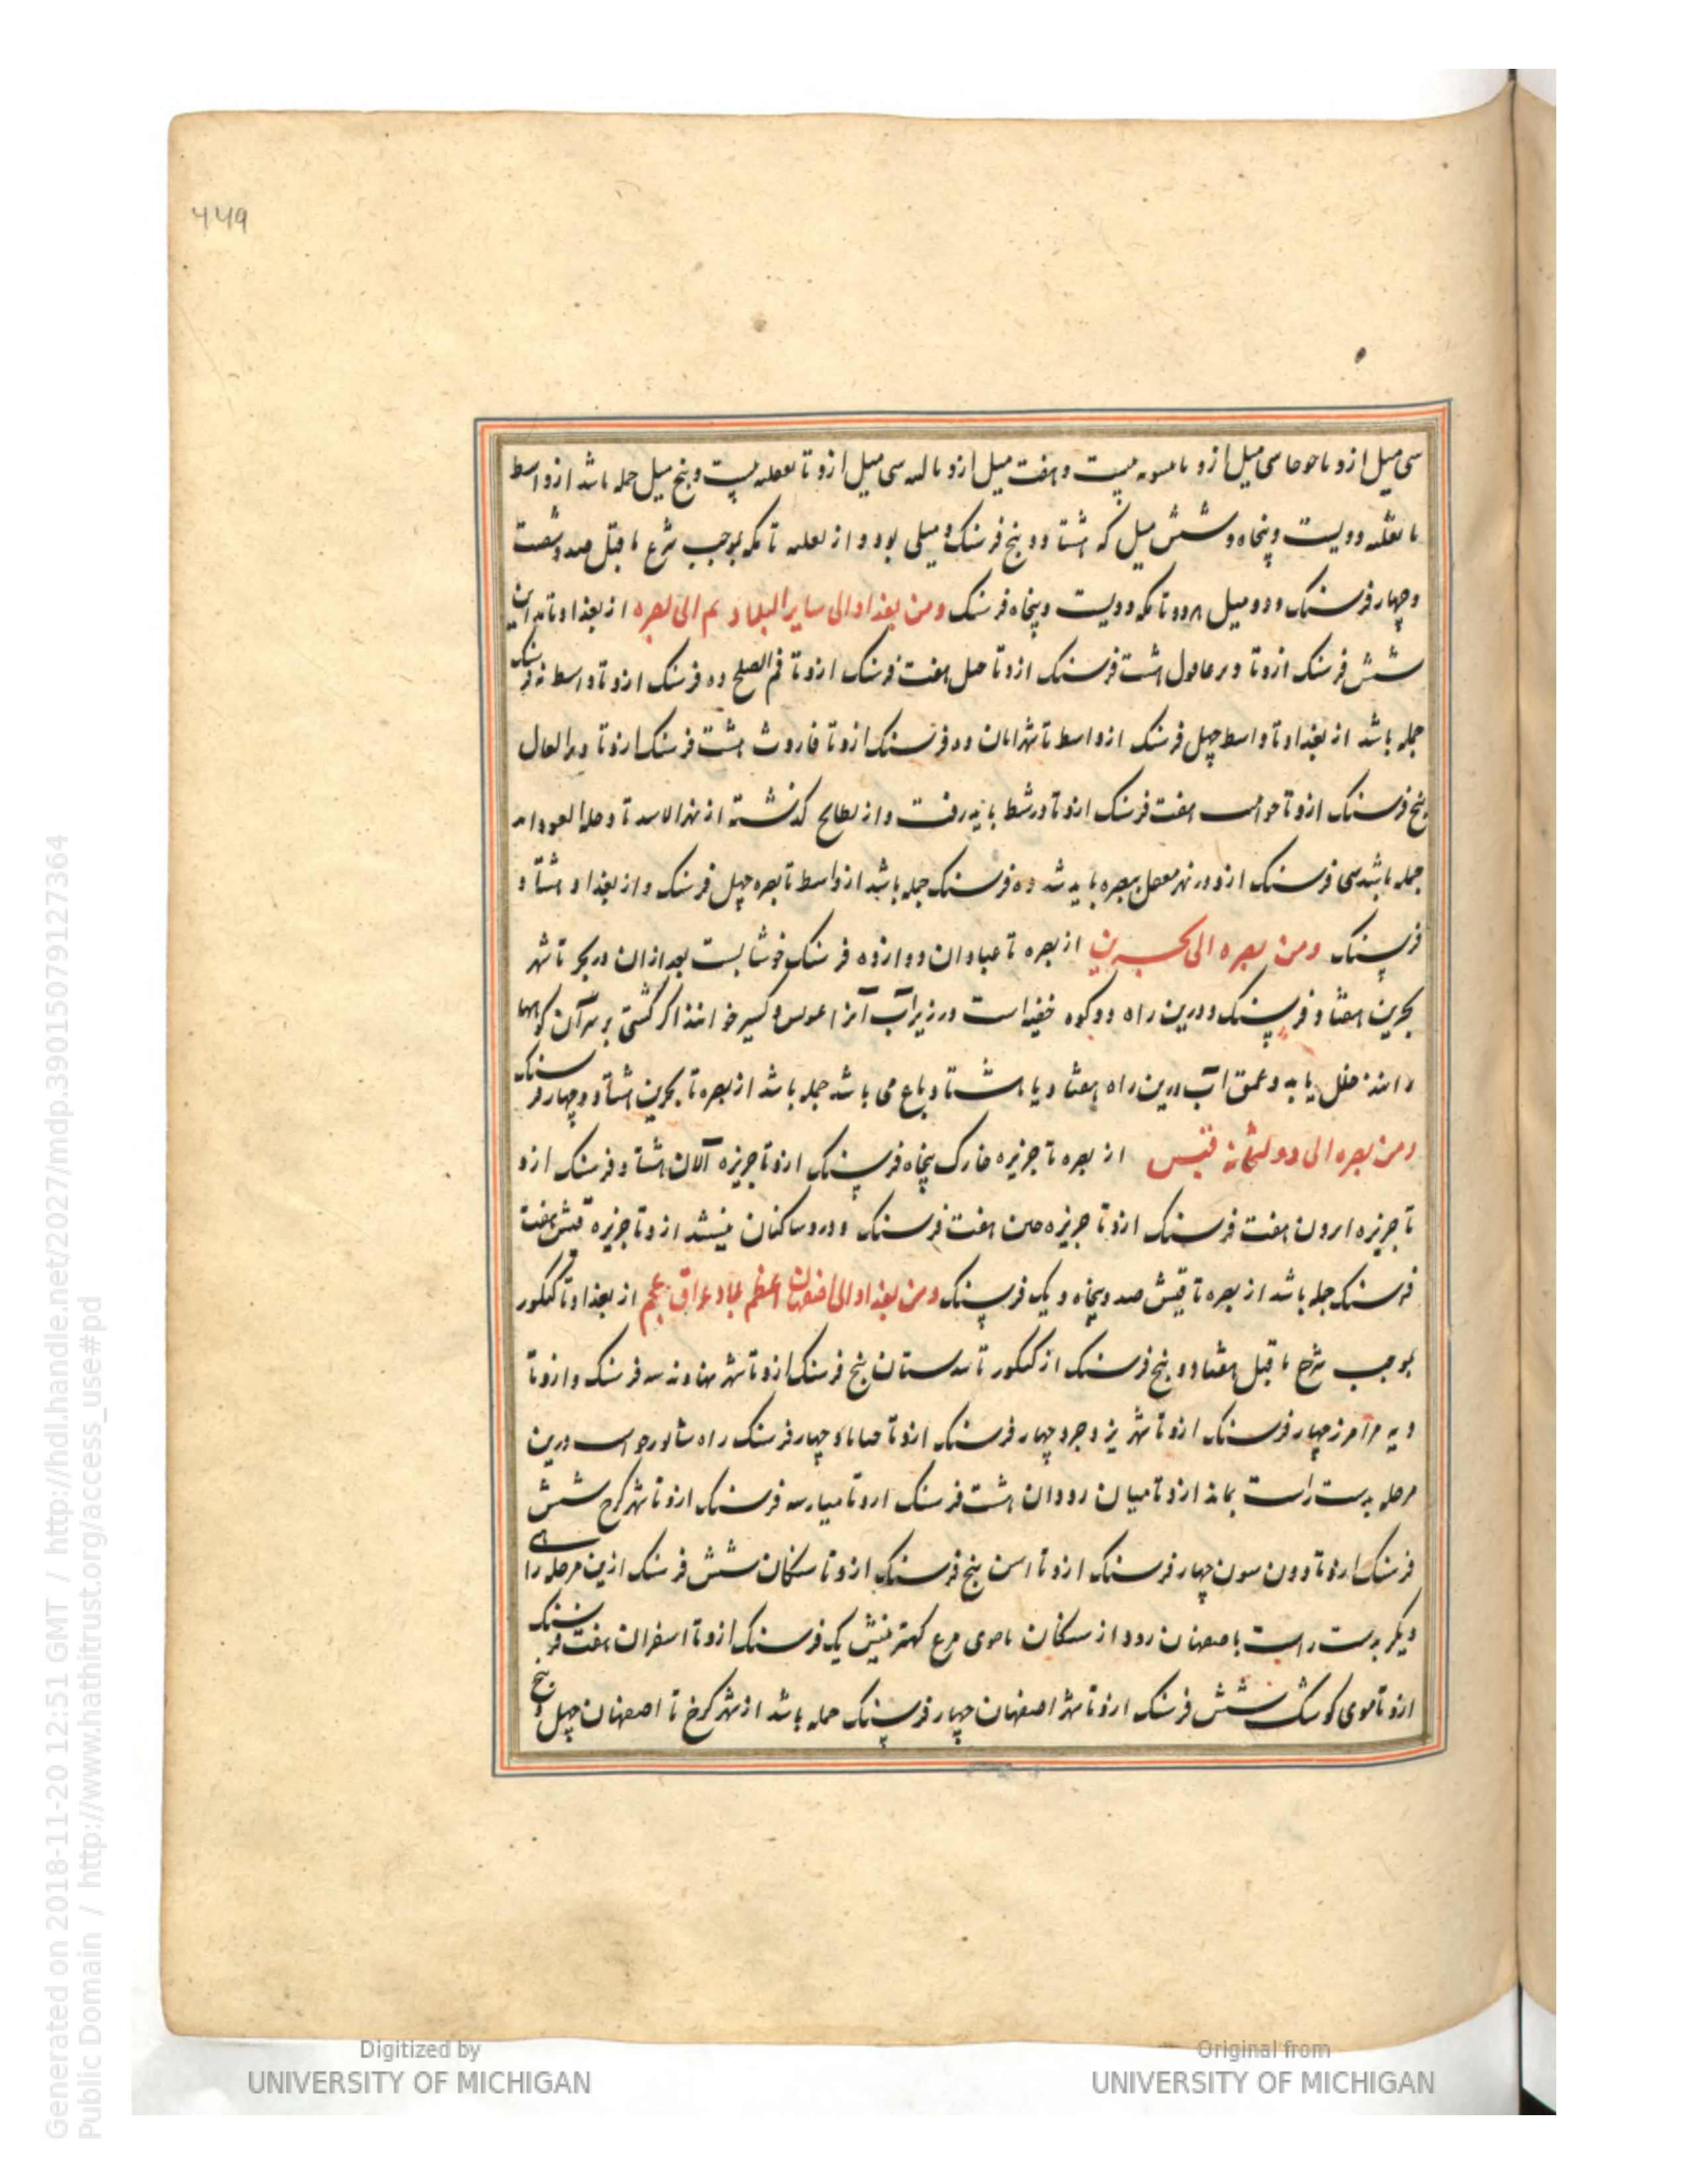 ۴۴۹
سی میل ازو تا حوحا سی میل ازو تا سبوبه بیست و هفت میل ازو تا لنه سی میل ازو تا ثعلبه بیست و پنج میل جمله باشد از واسط
تا ثعلبه دویست و پنجاه و شش میل که هشتاد و پنج فرسنک و میلی بود و از ثعلبه تا مکه بموجب شرح ما قبل صد و شصت
و چهار فرسنک و دو میل بود تا مکه دویست و پنجاه فرسنک ومن بغداد الی سایر البلاد ثم الی بصره از بغداد تا مداین
شش فرسنک ازو تا دیر عاقول هشت فرسنک ازو تا جبل هفت فرسنک ازو تا فم الصلح ده فرسنک ازو تا واسط نه فرسنک
جمله باشد از بغداد تا واسط چهل فرسنک از واسط تا نهرابان ده فرسنک ازو تا فاروث هشت فرسنک ازو تا دیر العال
پنج فرسنک ازو تا حوانیت هفت فرسنک ازو تا در شط باید رفت و از بطایح کذشته از نهر الاسد تا دجله العورا بد
جمله باشد سی فرسنک ازو در نهر معقل ببصره باید شد ده فرسنک جمله باشد از واسط تا بصره چهل فرسنک و از بغداد هشتاد
فرسنک ومن بصره الی بحرین از بصره تا عبادان دوازده فرسنک خوشابست بعد از ان در بحر تا شهر
بحرین هفتاد فرسنک و درین راه دو کوه خفیه است در زیر آب آنرا عویر و کسیر خوانند اکر کشتی بر سر آن کوهها
رانند خلل یابد و عمق اب درین راه هفتاد یا هشتاد باع می باشد جمله باشد از بصره تا بحرین هشتاد و چهار فرسنک
ومن بصره الی دولتخانه قیس از بصره تا جزیره خارک پنجاه فرسنک ازو تا جزیره آلان هشتاد فرسنک ازو
تا جزیره ابرون هفت فرسنک ازو تا جزیره هفت فرسنک و درو ساکنان نیستند ازو تا جزیره قیش هفت
فرسنک جمله باشد از بصره تا قیش صد و پنجاه و یک فرسنک ومن بغداد الی اصفهان اعظم بلاد عراق عجم از بغداد تا کنکور
بموجب شرح ما قبل هفتاد و پنج فرسنک از کنکور تا بیدستان پنج فرسنک ازو تا شهر نهاوند سه فرسنک و ازو تا
دیه فرامرز چهار فرسنک ازو تا شهر یزدجرد چهار فرسنک ازو تا صاباد چهار فرسنک راه شابورخواست درین
مرحله بدست راست بماند ازو تا میان رودان هشت فرسنک ازو تا میارسه فرسنک ازو تا شهر کرج شش
فرسنک ازو تا دون سون چهار فرسنک ازو تا اسن پنج فرسنک ازو تا سنکان شش فرسنک ازین مرحله راهی
دیکر بدست راست باصفهان رود از سنکان تا جوی مرغ کهتر نیش یک فرسنک ازو تا اسفران هفت فرسنک
ازو تا جوی کوشک شش فرسنک ازو تا شهر اصفهان چهار فرسنک جمله باشد از شهر کرج تا اصفهان چهل و پنج
Digitized by
UNIVERSITY OF MICHIGAN
Original from
UNIVERSITY OF MICHIGAN
Generated on 2018-11-20 12:51 GMT / http://hdl.handle.net/2027/mdp.39015079127364
Public Domain / http://www.hathitrust.org/access_use#pd